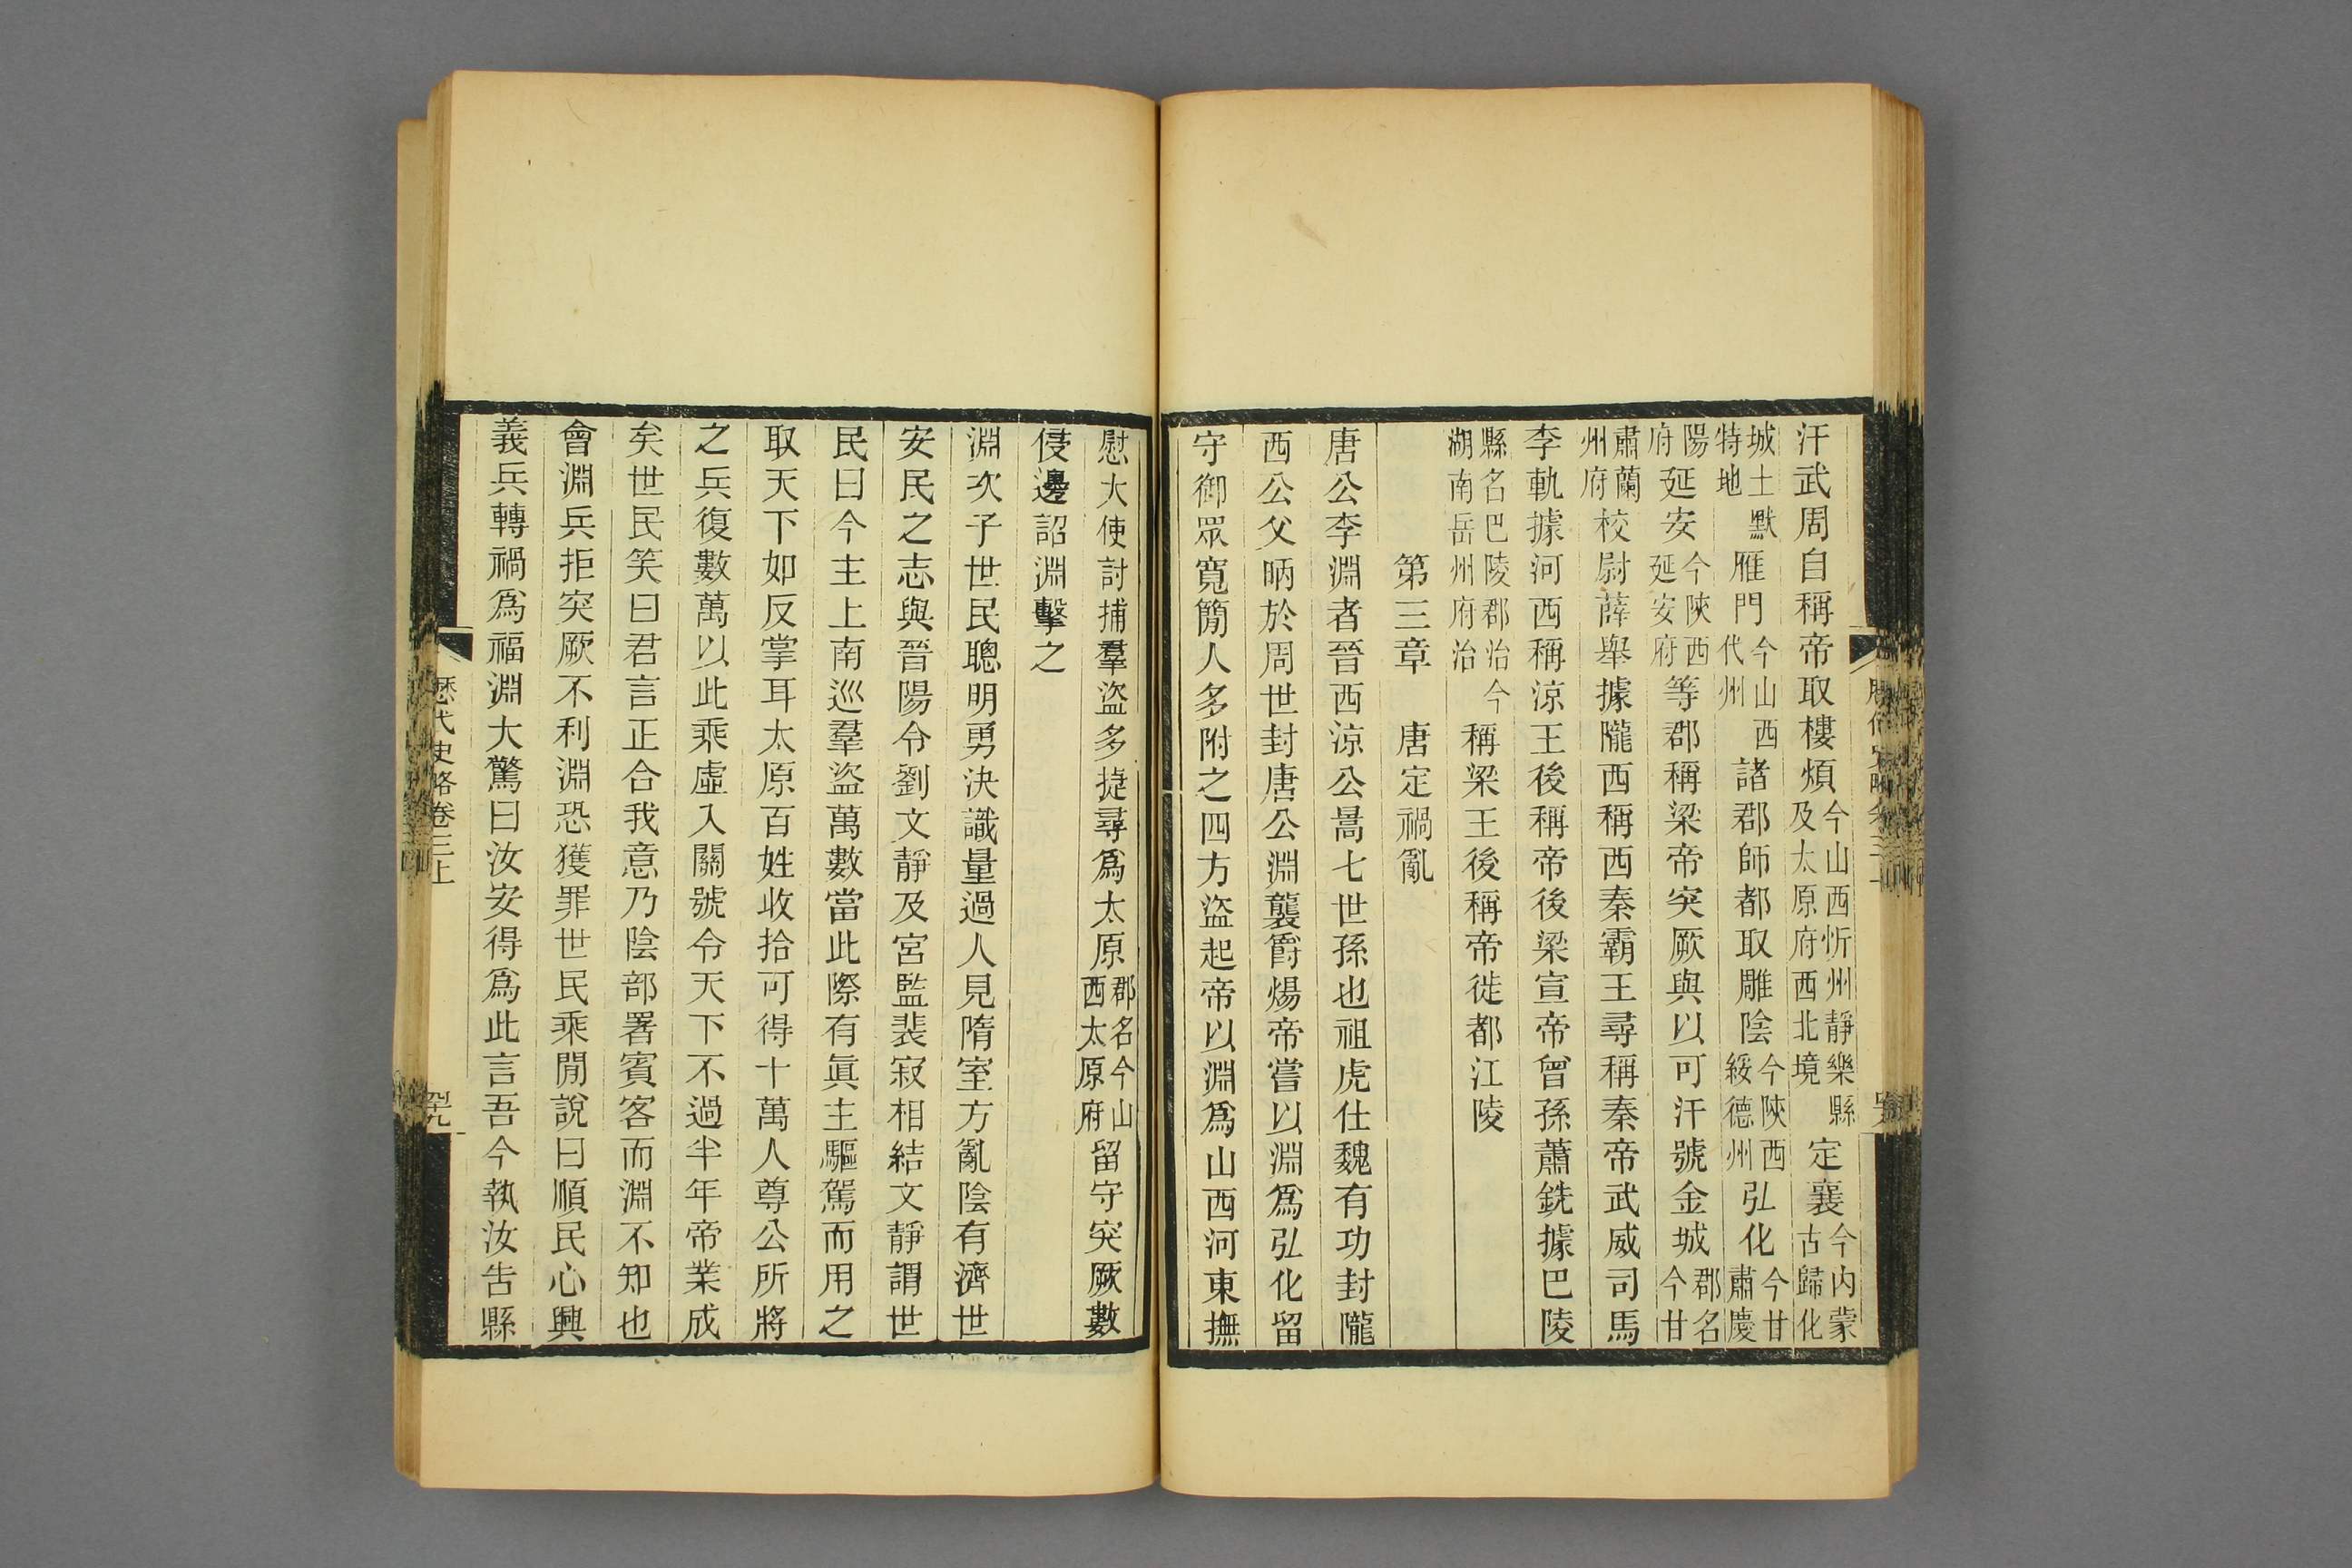 汗武周自稱帝取樓煩今山西忻州靜樂縣及太原府西北境定襄今內蒙古歸化
城土默特地雁門今山西代州諸郡師都取雕陰今陝西綏德州弘化今甘肅慶
陽府延安今陝西延安府等郡稱梁帝突厥與以可汗號金城郡名今甘
肅蘭州府校尉薛舉據隴西稱西秦霸王尋稱秦帝武威司馬
李軌據河西稱涼王後稱帝後梁宣帝曾孫蕭銑據巴陵
縣名巴陵郡治今湖南岳州府治稱梁王後稱帝徙都江陵
第三章　唐定禍亂
唐公李淵者晉西涼公暠七世孫也祖虎仕魏有功封隴
西公父昞於周世封唐公淵襲爵煬帝嘗以淵爲弘化留
守御眾寬簡人多附之四方盜起帝以淵爲山西河東撫
慰大使討捕羣盜多捷尋爲太原郡名今山西太原府留守突厥數
侵邊詔淵擊之
淵次子世民聰明勇決識量過人見隋室方亂陰有濟世
安民之志與晉陽令劉文靜及宮監裴寂相結文靜謂世
民曰今主上南巡羣盜萬數當此際有眞主驅駕而用之
取天下如反掌耳太原百姓收拾可得十萬人尊公所將
之兵復數萬以此乘虛入關號令天下不過半年帝業成
矣世民笑曰君言正合我意乃陰部署賓客而淵不知也
會淵兵拒突厥不利淵恐獲罪世民乘閒說曰順民心興
義兵轉禍爲福淵大驚曰汝安得爲此言吾今執汝告縣
歷代史略卷三上